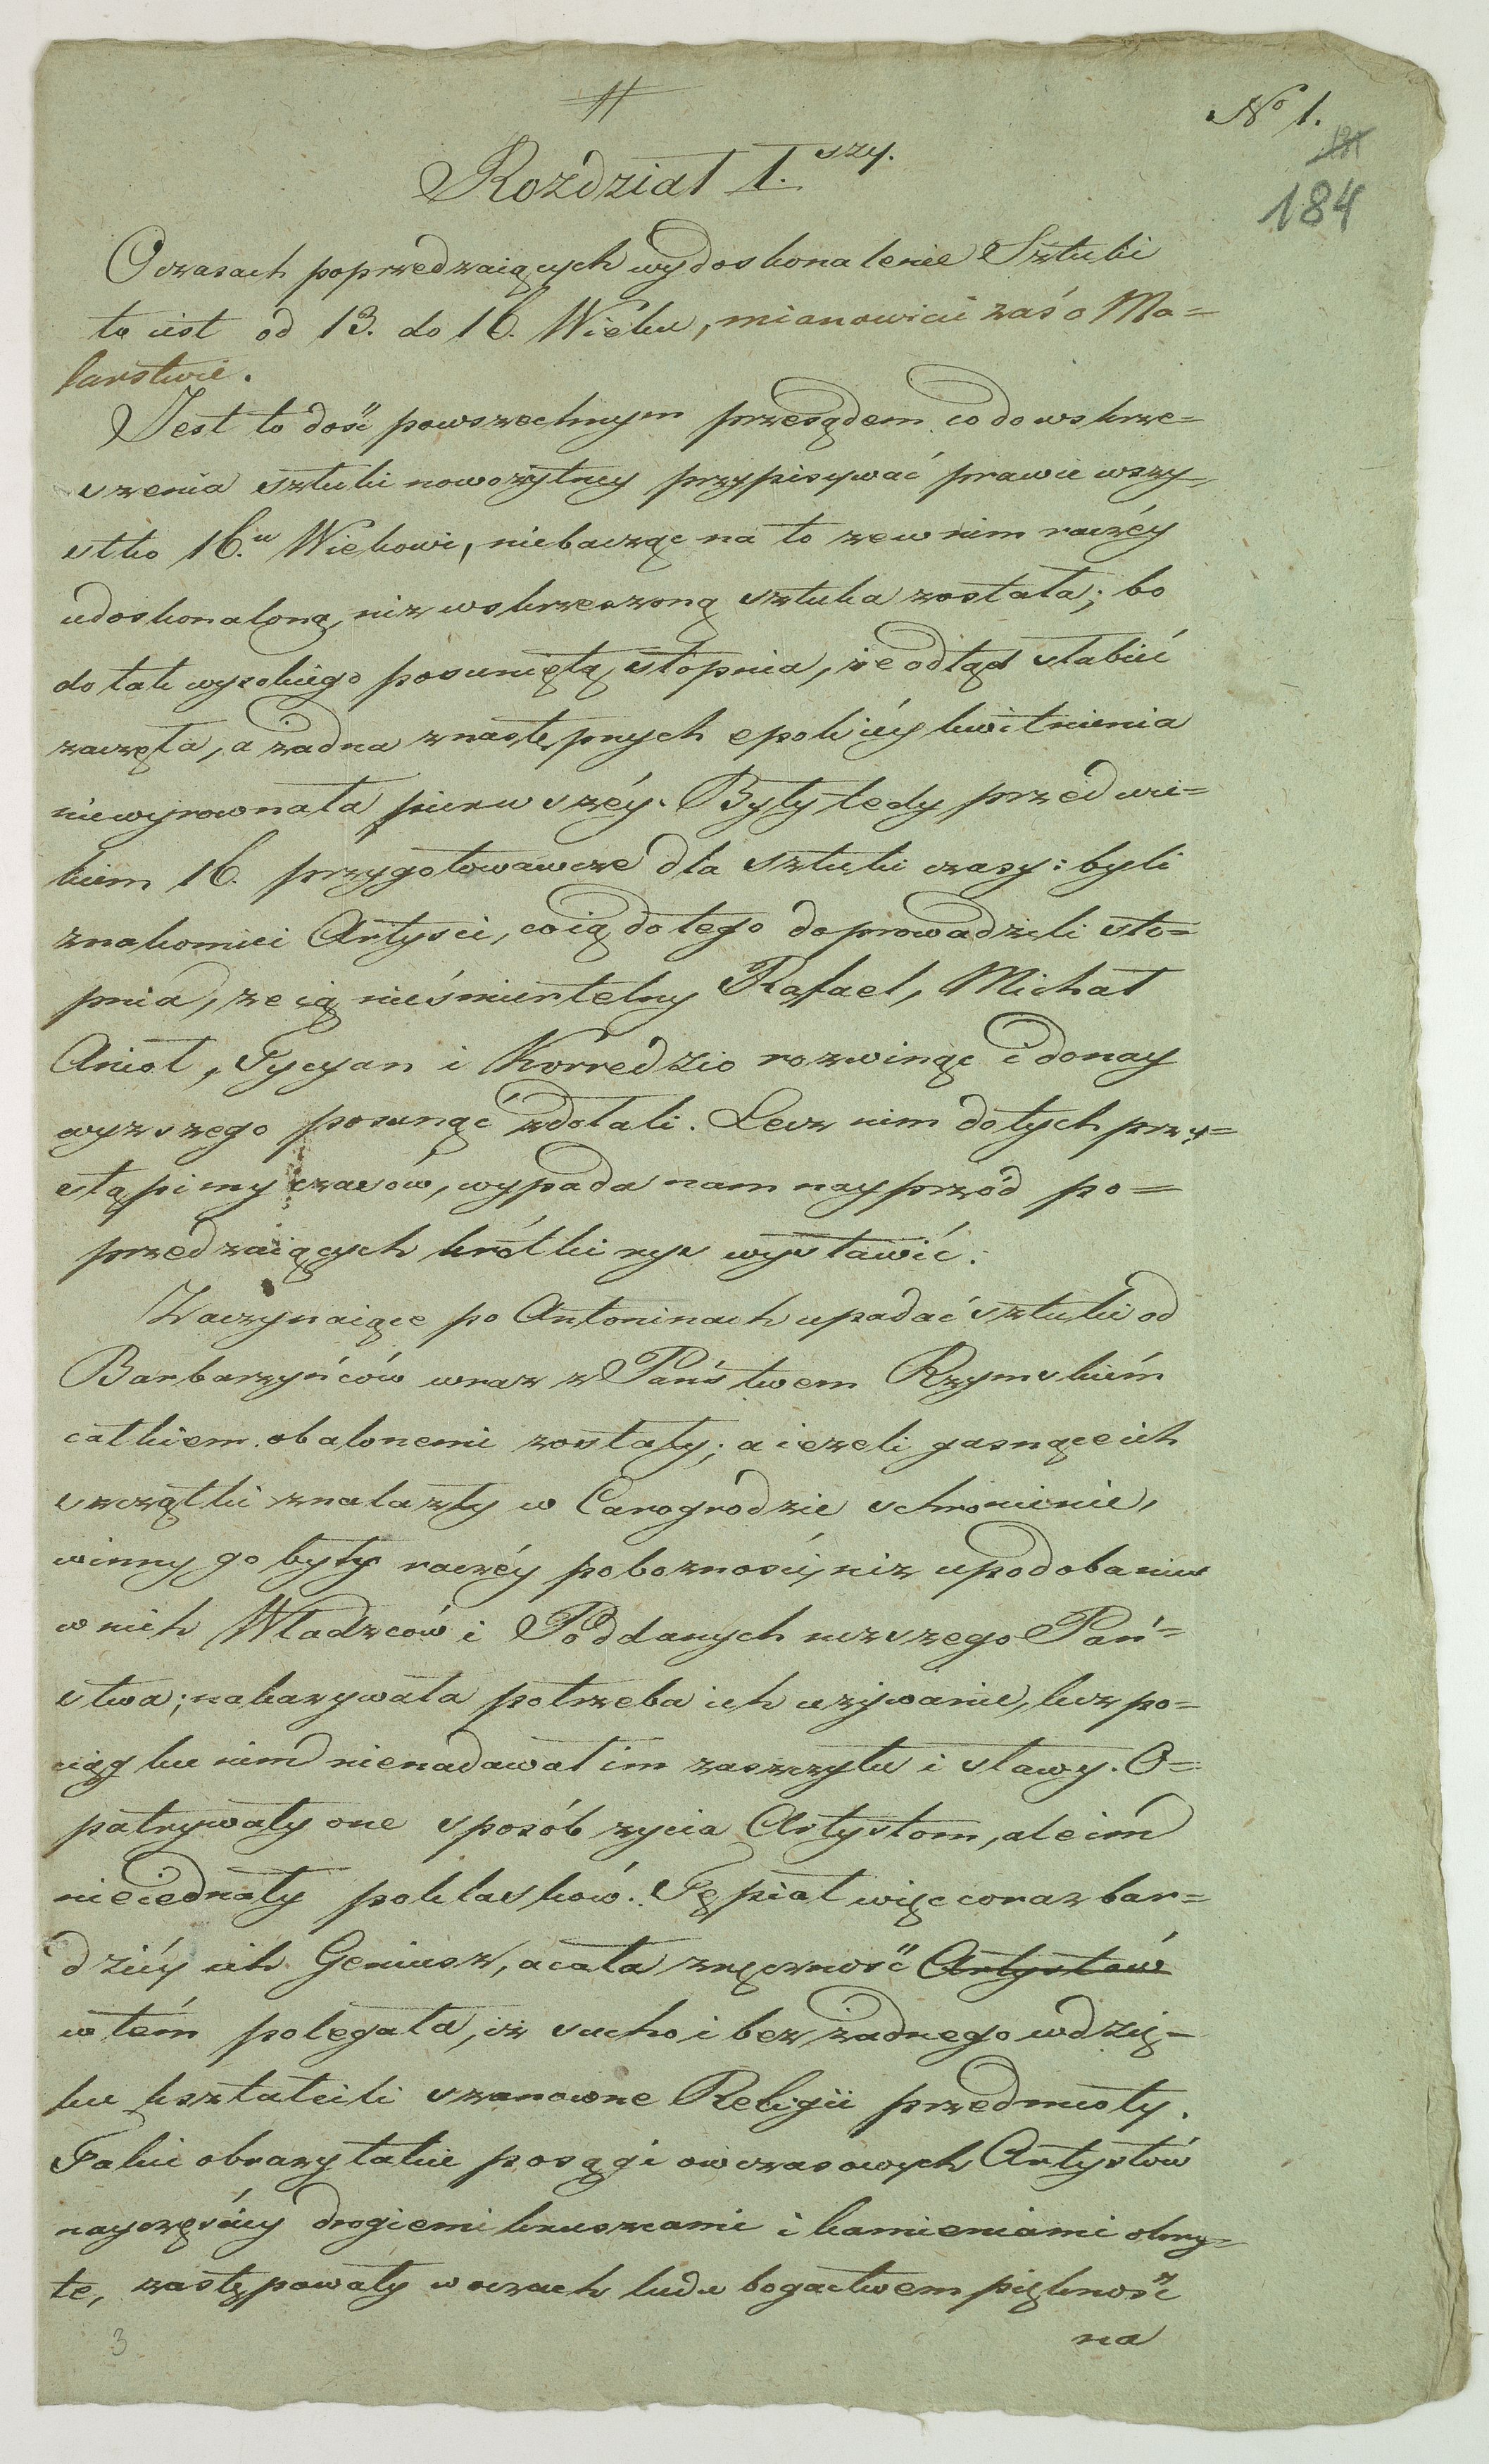 No 1.
184
Rozdział I.szy.
O czasach poprzedzaiących wydoskonalenie Sztuki
to iest od 13. do 16. Wieku, mianowicie zaś o Ma=
larstwie.
Jest to dość powszechnym przesądem co do wskrze=
szenia sztuki nowożytney przypisywać prawie wszy=
stko 16.u Wiekowi, niebacząc na to ze w nim raczéy
udoskonaloną, niz wskrzeszoną sztuka została; bo
do tak wysokiego posuniętą stopnia, że odtąd słabieć
zaczęła, a żadna z następnych epok iéy kwitnienia
niewyrownała pierwszéy. Były tedy przed wie=
kiem 16. przygotowawcze dla sztuki czasy: byli
znakomici Artysci, co ią do tego doprowadzili sto=
pnia, ze ią nieśmiertelny Rafael, Michał
Anioł, Tycyan i Korredzio rozwinąc i do nay
wyzszego posunąć zdołali. Lecz nim do tych przy=
stąpimy czasów, wypada nam nayprzód po=
przedzaiących krótki rys wystawić.
Zaczynaiące po Antoninach upadać sztuki od
Barbarzyńców wraz z Państwem Rzymskiém
całkiem obalonemi zostały; a iezeli gasnące ich
szczątki znalazły w Carogrodzie schronienie,
winny go były raczéy pobozności, niz upodobaniu
w nich Władzców i Poddanych niższego Pań=
stwa; nakazywała potrzeba ich uzywanie, lecz po=
ciąg ku nim nienadawał im zaszczytu i sławy. O=
patrywały one sposób zycia Artystom, ale im
nieiednały poklasków. Tępiał więc coraz bar=
dziéy ich Geniusz, a cała zręczność Artystów
w tém polegała, iż sucho i bez żadnego wdzię=
ku kształcili szanowne Religii przedmioty.
Takie obrazy takie posągi owczasowych Artystów
nayczęściéy drogiemi kruszcami i kamieniami okry=
te, zastępowały w oczach ludu bogactwem piękność
na
3